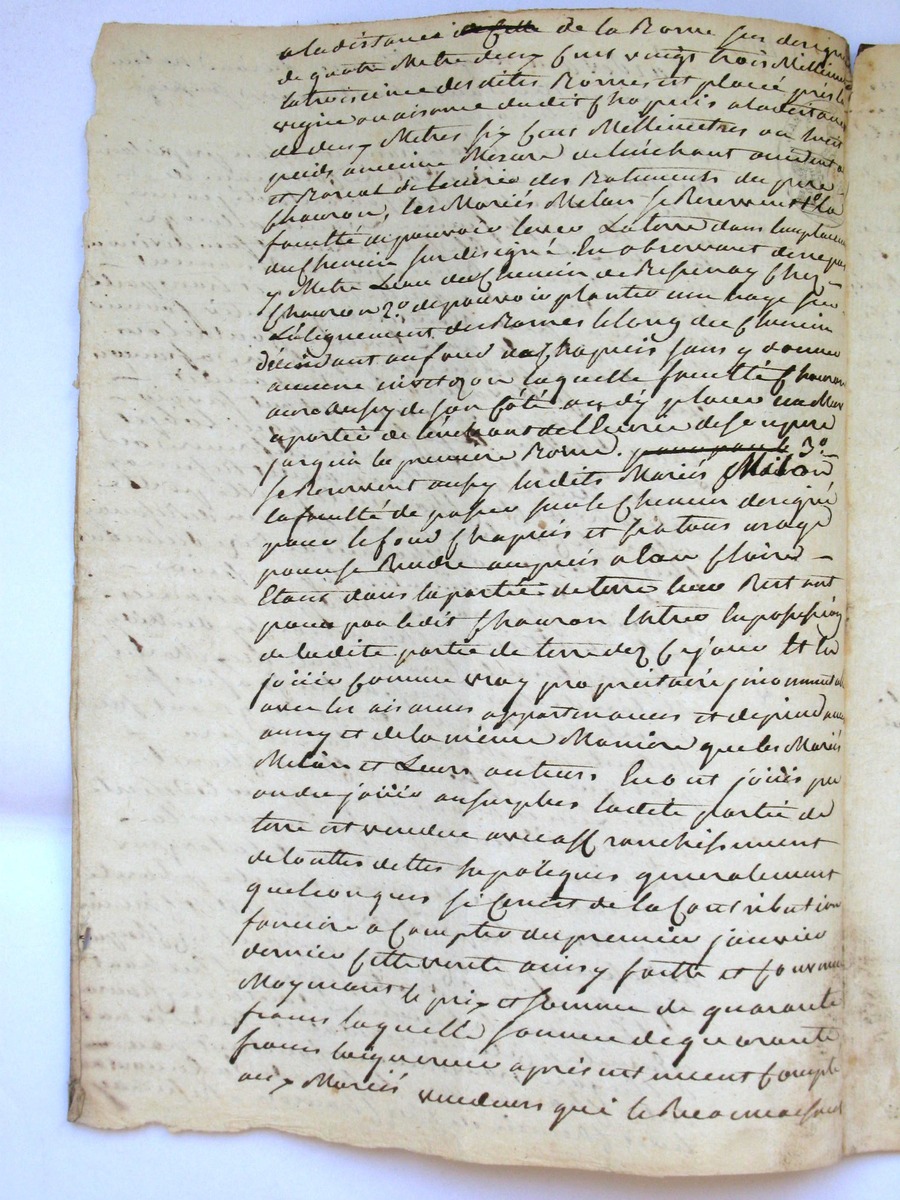 a la distance de celle de la Borne sus designé
de quatre Metre deux Cent vingt trois Millimetres
la troisieme des dites Bornes est placée près la
vigne ou aisance dudit Chapuis a la distance
de deux Metres six Cens Millimetres ou huit
pieds ancienne Mesure de l'enchant occident
et Boreal de l'ecurie des Batiments du pere
Chauron, les Mariés Milan se Reservent 1º la
faculté de pouvoir lever la terre dans l'emplacement
du Chemin sus designé En observant
y Metre Leau du Chemin de Chez
Chauron 2º de pouvoir planter une haye sur
L'alignement des Bornes le long du Chemin
descendant au fond Chapuis sans y donner
aucune laquelle faculté Chauron
aura aussy de son Côté ou d'y placer un Mur
a partir de l'enchant de l'Ecurie de son pere
jusqu'a la premiere Borne. 3º
se Reservent aussy lesdits Mariés Milan
la faculté de passer sur le Chemin designé
pour le fond Chapuis et pra tous usage
pour se Rendre auprès a leau Claire
Etant dans la partie de terre leur Restant
pour par ledit Chauron Entrer en possession
de la dite partie de terre dez Ce jour Et en
jouir Comme vray proprietaire
avec les aisances appartenances et dependances
ainsy et de la même Maniere que les Mariés
Milan et Leurs auteurs En ont jouis pu
ou du jouir au surplus ladite partie de
terre est vendue avec affranchissement
de toutes dettes hypoteques generalement
quelconques se Cens de la Contribution
fonciere a Compter du premier janvier
dernier Cette vente ainsy faitte et
Moymant le prix et somme de quarante
francs laquelle somme de quarante
francs l'aquereur a présentement Compté
aux Mariés vendeurs qui le Reconnaissent